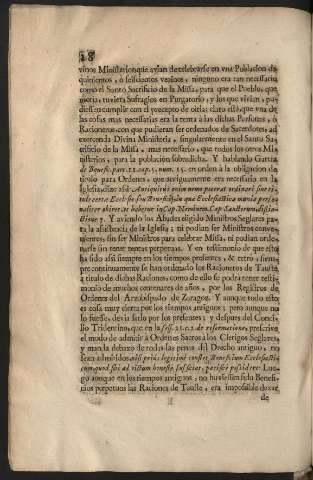 28
vinos Ministerios que avian de celebrarse en vna Poblacion de
quinientos, ò seiscientos vezinos, ninguno era tan necessario
como el Santo Sacrificio de la Missa, para que el Pueblo, que
moria, tuviera Sufragios en Purgatorio, y los que vivian, pu-
diessen cumplir con el precepto de oirla: claro està, que vna de
las cosas mas necessarias era la renta à las dichas Personas, ò
Racioneros, con que pudieran ser ordenados de Sacerdotes, ad
exercenda Divina Ministeria, singularmente en el Santo Sa-
crificio de la Missa, mas necessario, que todos los otros Mi-
nisterios, para la poblacion sobredicha. Y hablando Garcia
de Benefic. part. 2. cap. 5. num. 15. en orden à la obligacion de
titulo para Ordenes, que antiguamente era necessario en la
Iglesia, dize
titulo certae Ecclesiae seu Beneficij
Y aviendo los Abades elegido Ministros Seglares pa-
ra la assistencia de la Iglesia; ni podian ser Ministros conve-
nientes, sin ser Ministros para celebrar Missa, ni podian orde-
narse sin tener rentas perpetuas. Y en testimonio de que esto
ha sido assi siempre en los tiempos presentes, & retro, siem-
pre continuamente se han ordenado los Racioneros de Tauste,
a titulo de dichas Raciones, como de ello se podrà tener testi-
monio de muchos centenares de años, por los Registros de
Ordenes del Arzobispado de Zaragoza. Y aunque todo esto
es cosa muy cierta por los tiempos antiguos; pero aunque no
lo fuesse, devia serlo por los presentes; y despues del Conci-
lio Tridentino, que en la sess. 21. c. 2. de reformatione, prescrive
el modo de admitir à Ordenes Sacros à los Clerigos Seglares,
y manda debaxo de todas las penas del Drecho antiguo, no
sean admitidos nisi prius legitimè constet Beneficium Ecclesiasticum
quod sibi ad victum honestè sufficiat, pacificè possidere: Lue-
go aunque en los tiempos antiguos, no huviessen sido Benefi-
cios perpetuos las Raciones de Tauste, era impossible dexar
de